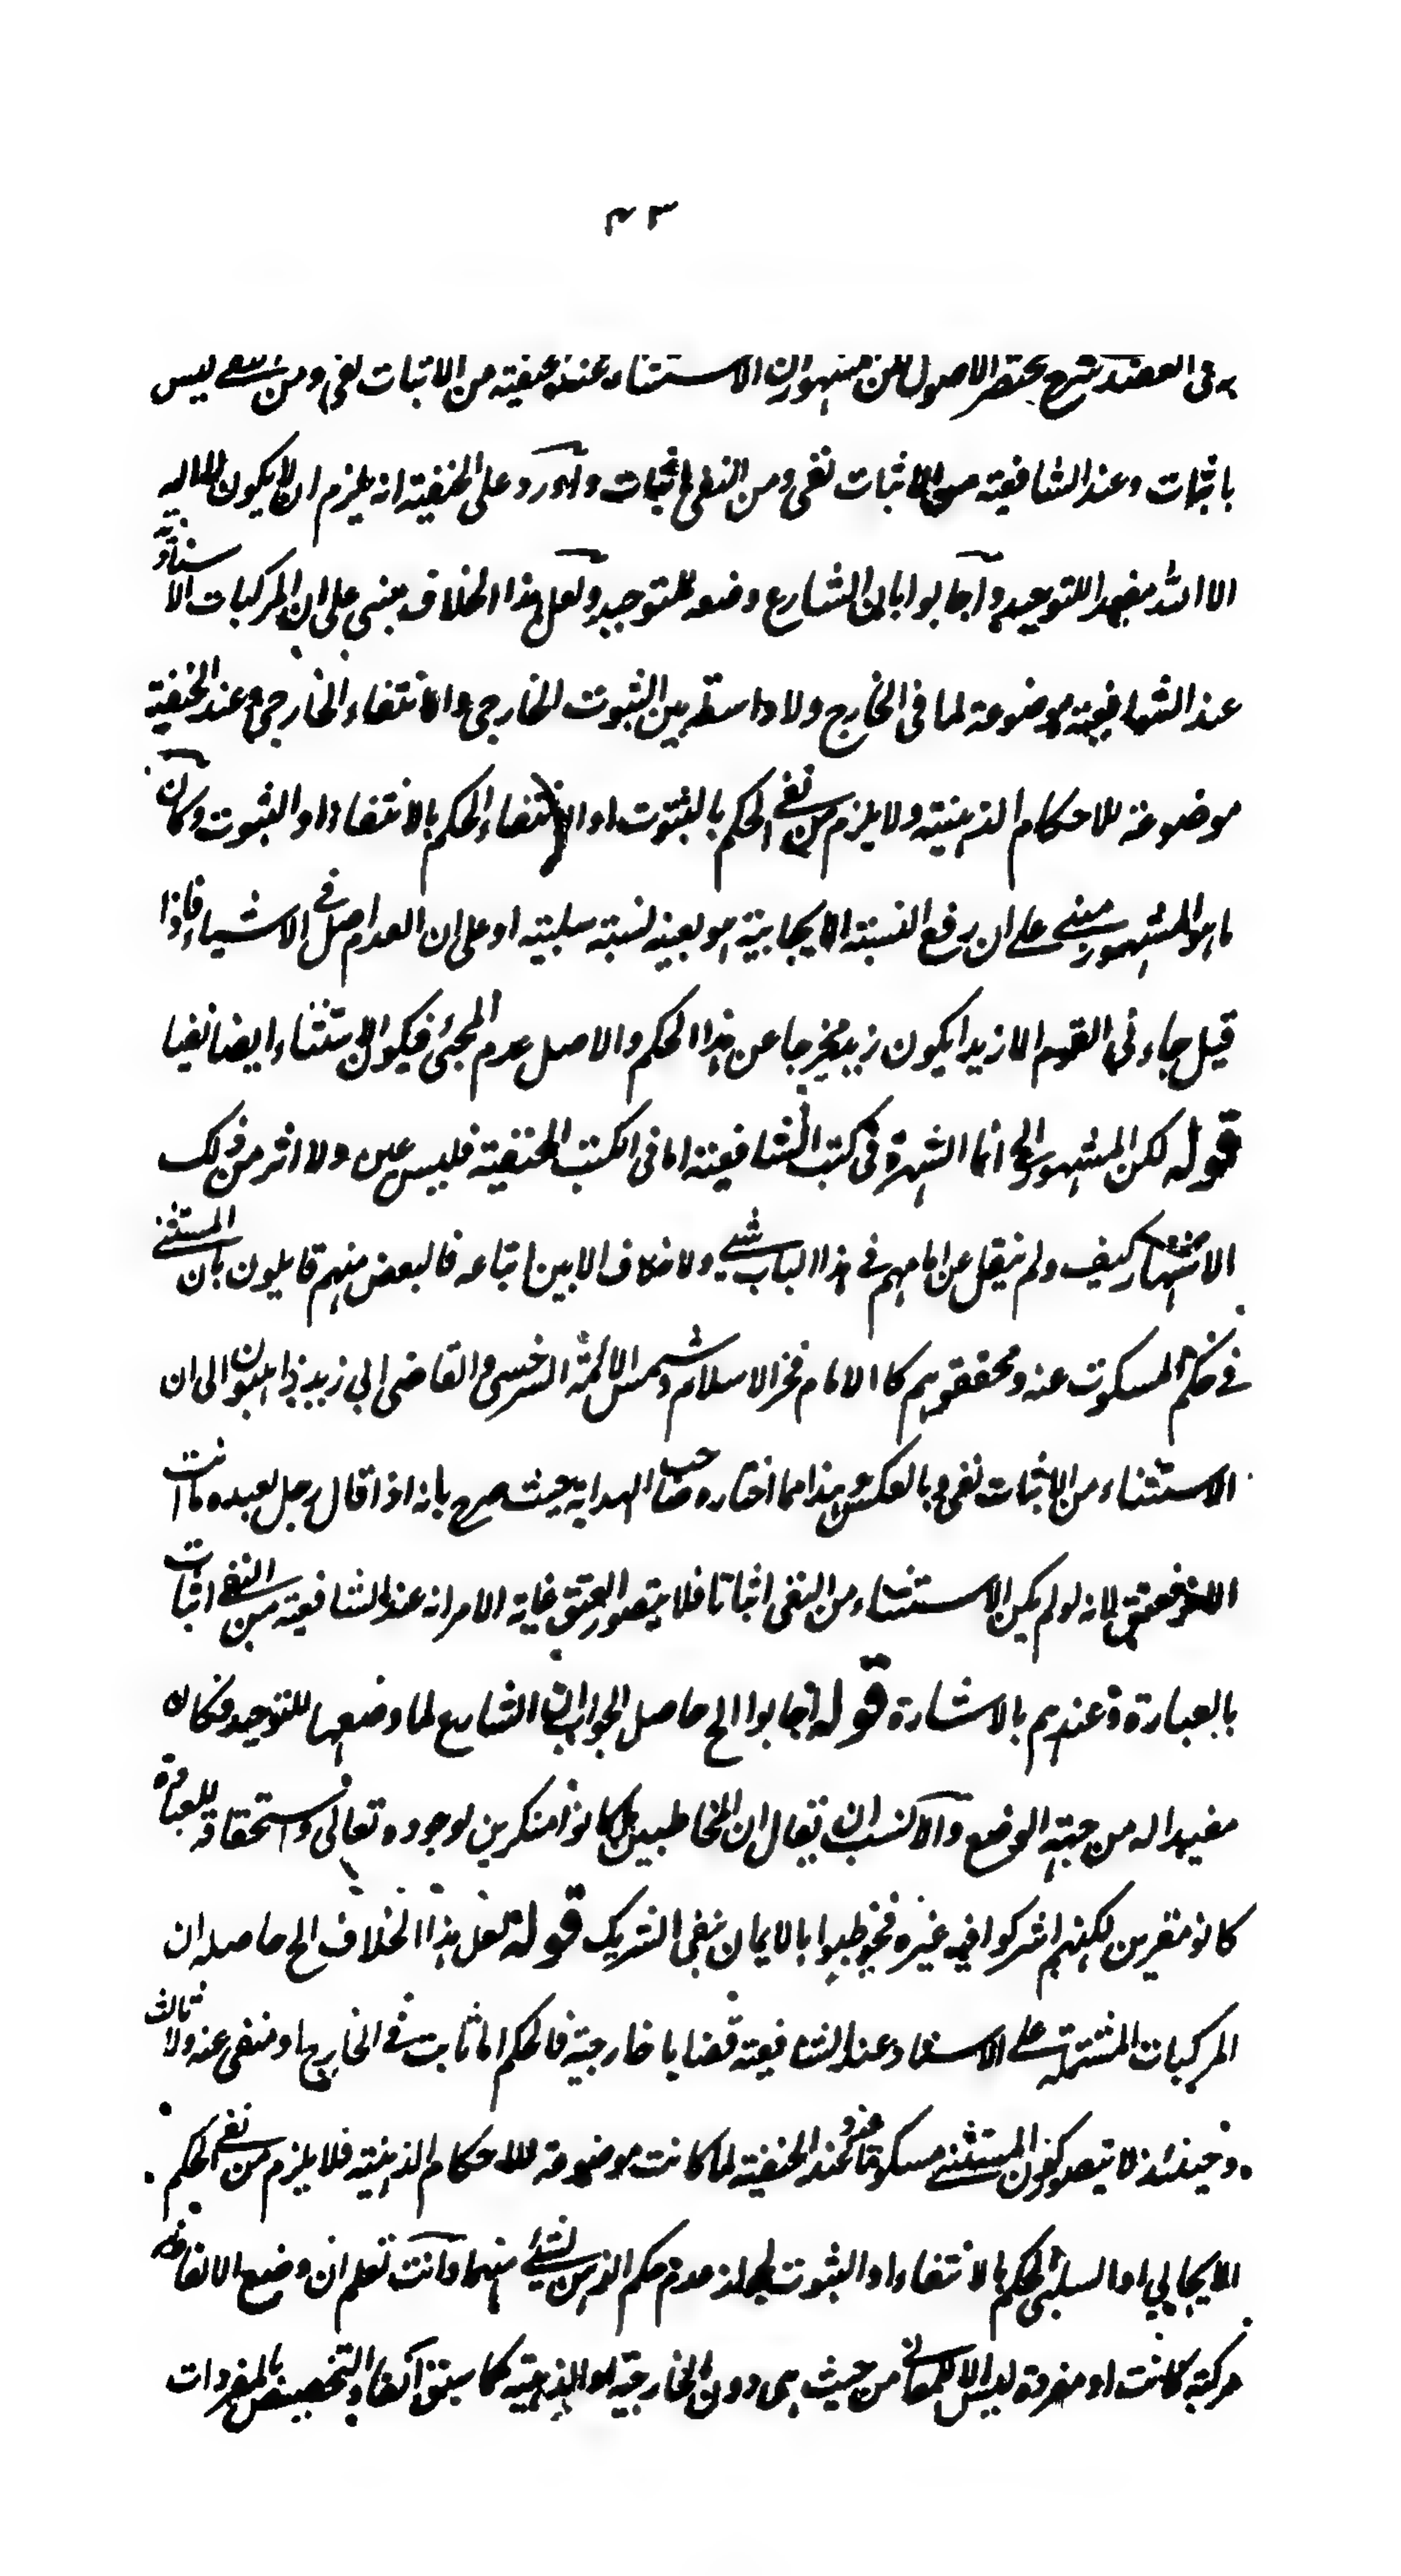 ٤٣
العضد شرح مختصر الاصول لكن المشهور ان الاستثناء عند الحنفية من الاثبات نفى ومن النفى ليس
باثبات وعند الشافعية من الاثبات نفى ومن النفى اثبات واورد على الحنفية انه يلزم ان لا يكون لا اله
الا الله مفيدا للتوحيد واجابوا بان الشارع وضعه للتوحيد ولعل هذا الخلاف مبنى على ان المركبات الاسنادية
عند الشافعية موضوعة لما فى الخارج ولا واسطة بين الثبوت الخارجى والانتفاء الخارجى وعند الحنفية
موضوعة للاحكام الذهنية ولا يلزم من نفى الحكم بالثبوت او الانتفاء الحكم بالانتفاء او الثبوت وكان
ما هو المشهور مبنى على ان رفع النسبة الايجابية هو بعينه نسبة سلبية او على ان العدم اصل فى الاشياء فاذا
قيل جاءنى القوم الا زيدا يكون زيد مخرجا عن هذا الحكم والاصل عدم المجئ فيكون الاستثناء ايضا نفيا
قوله لكن المشهور الخ انما الشهرة فى كتب الشافعية اما فى الكتب الحنفية فليس عين ولا اثر من ذلك
الاشتهار كيف ولم ينقل عن امامهم فى هذا الباب شئ ولا خلاف الا بين اتباعه فالبعض منهم قايلون بان المستثنى
فى حكم المسكوت عنه ومحققوهم كالامام فخر الاسلام وشمس الائمة السرخسى والقاضى ابى زيد ذاهبون الى ان
الاستثناء من الاثبات نفى وبالعكس وهذا مما اختاره صاحب الهداية حيث صرح بانه اذا قال رجل لعبده ما انت
الا حر فعتق لانه لو لم يكن الاستثناء من النفى اثباتا فلا يتصور العتق غاية الامر انه عند الشافعية من النفى اثبات
بالعبارة وعندهم بالاشارة قوله اجابوا الخ حاصل الجواب ان الشارع لما وضعها للتوحيد فكان
مفيدا له من جهة الوضع والانسب ان يقال ان المخاطبين ما كانوا منكرين لوجوده تعالى واستحقاقه للعبادة
كانوا مقرين لكنهم اشركوا فيه غيره فخوطبوا بالايمان بنفى الشريك قوله لعل هذا الخلاف الخ حاصله ان
المركبات المشتملة على الاسناد عند الشافعية قضايا خارجية فالحكم اما ثابت فى الخارج او منفى عنه ولا ثالث
وحينئذ لا يتصور كون المستثنى مسكوتا عنه وعند الحنفية لما كانت موضوعة للاحكام الذهنية فلا يلزم من نفى الحكم
الايجابى او السلبى الحكم بالانتفاء او الثبوت لجواز عدم حكم الذهن لشئ منهما وانت تعلم ان وضع الالفاظ
مركبة كانت او مفردة ليس الا للمعانى من حيث هى دون الخارجية او الذهنية كما سبق آنفا والتخصيص بالمفردات